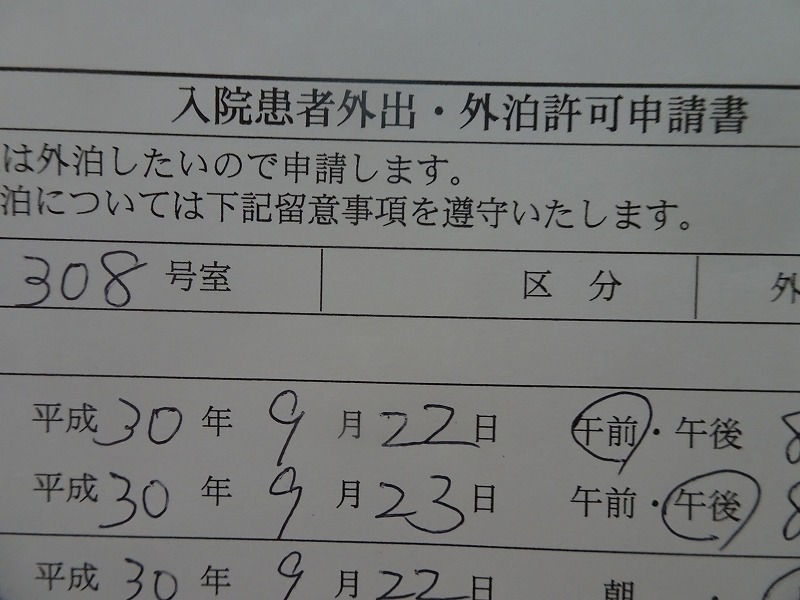 入院患者外出・外泊許可申請書
は外泊したいので申請します。
泊については下記留意事項を遵守いたします。
308 号室 区 分 外
平成 30 年 9 月 22 日 午前・午後 8
平成 30 年 9 月 23 日 午前・午後 8
平成 30 年 9 月 22 日 朝 ・